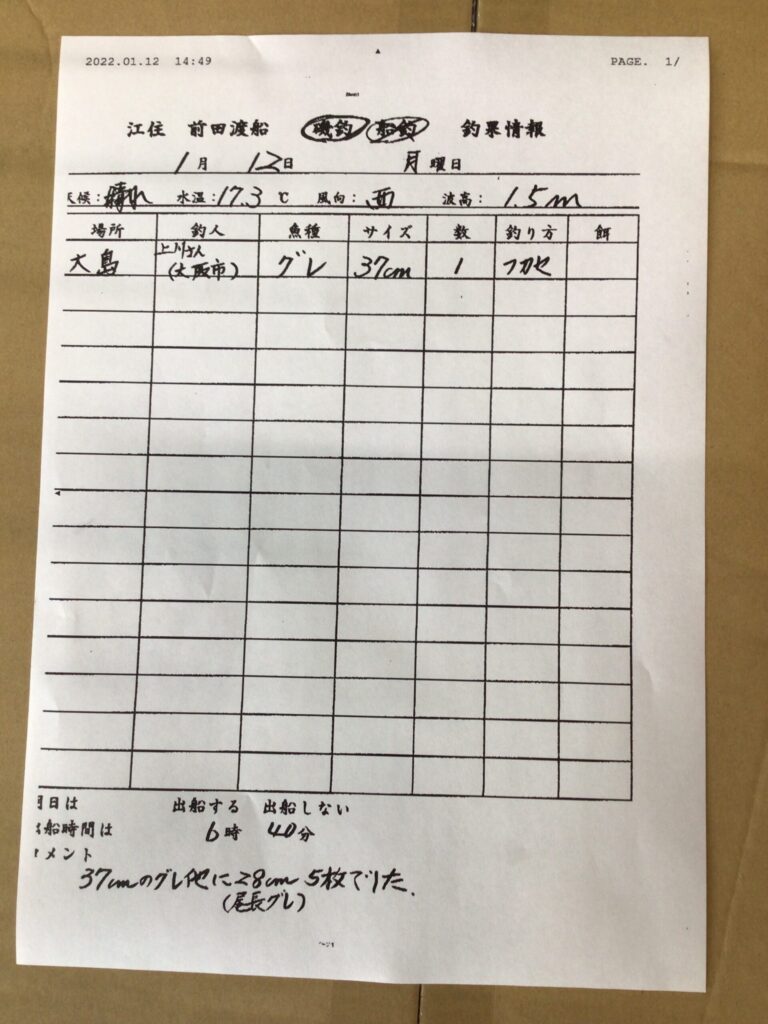 2022.01.12 14:49 PAGE. 1/
江住 前田渡船 磯釣 船釣 釣果情報
1月 12日 月曜日
天候：晴れ 水温：17.3 ℃ 風向：西 波高： 1.5m
場所 釣人 魚種 サイズ 数 釣り方 餌
大島 上川さん(大阪市) グレ 37cm 1 フカセ
明日は 出船する 出船しない
出船時間は 6時 40分
コメント
37cmのグレ他に28cm 5枚でした.
(尾長グレ)